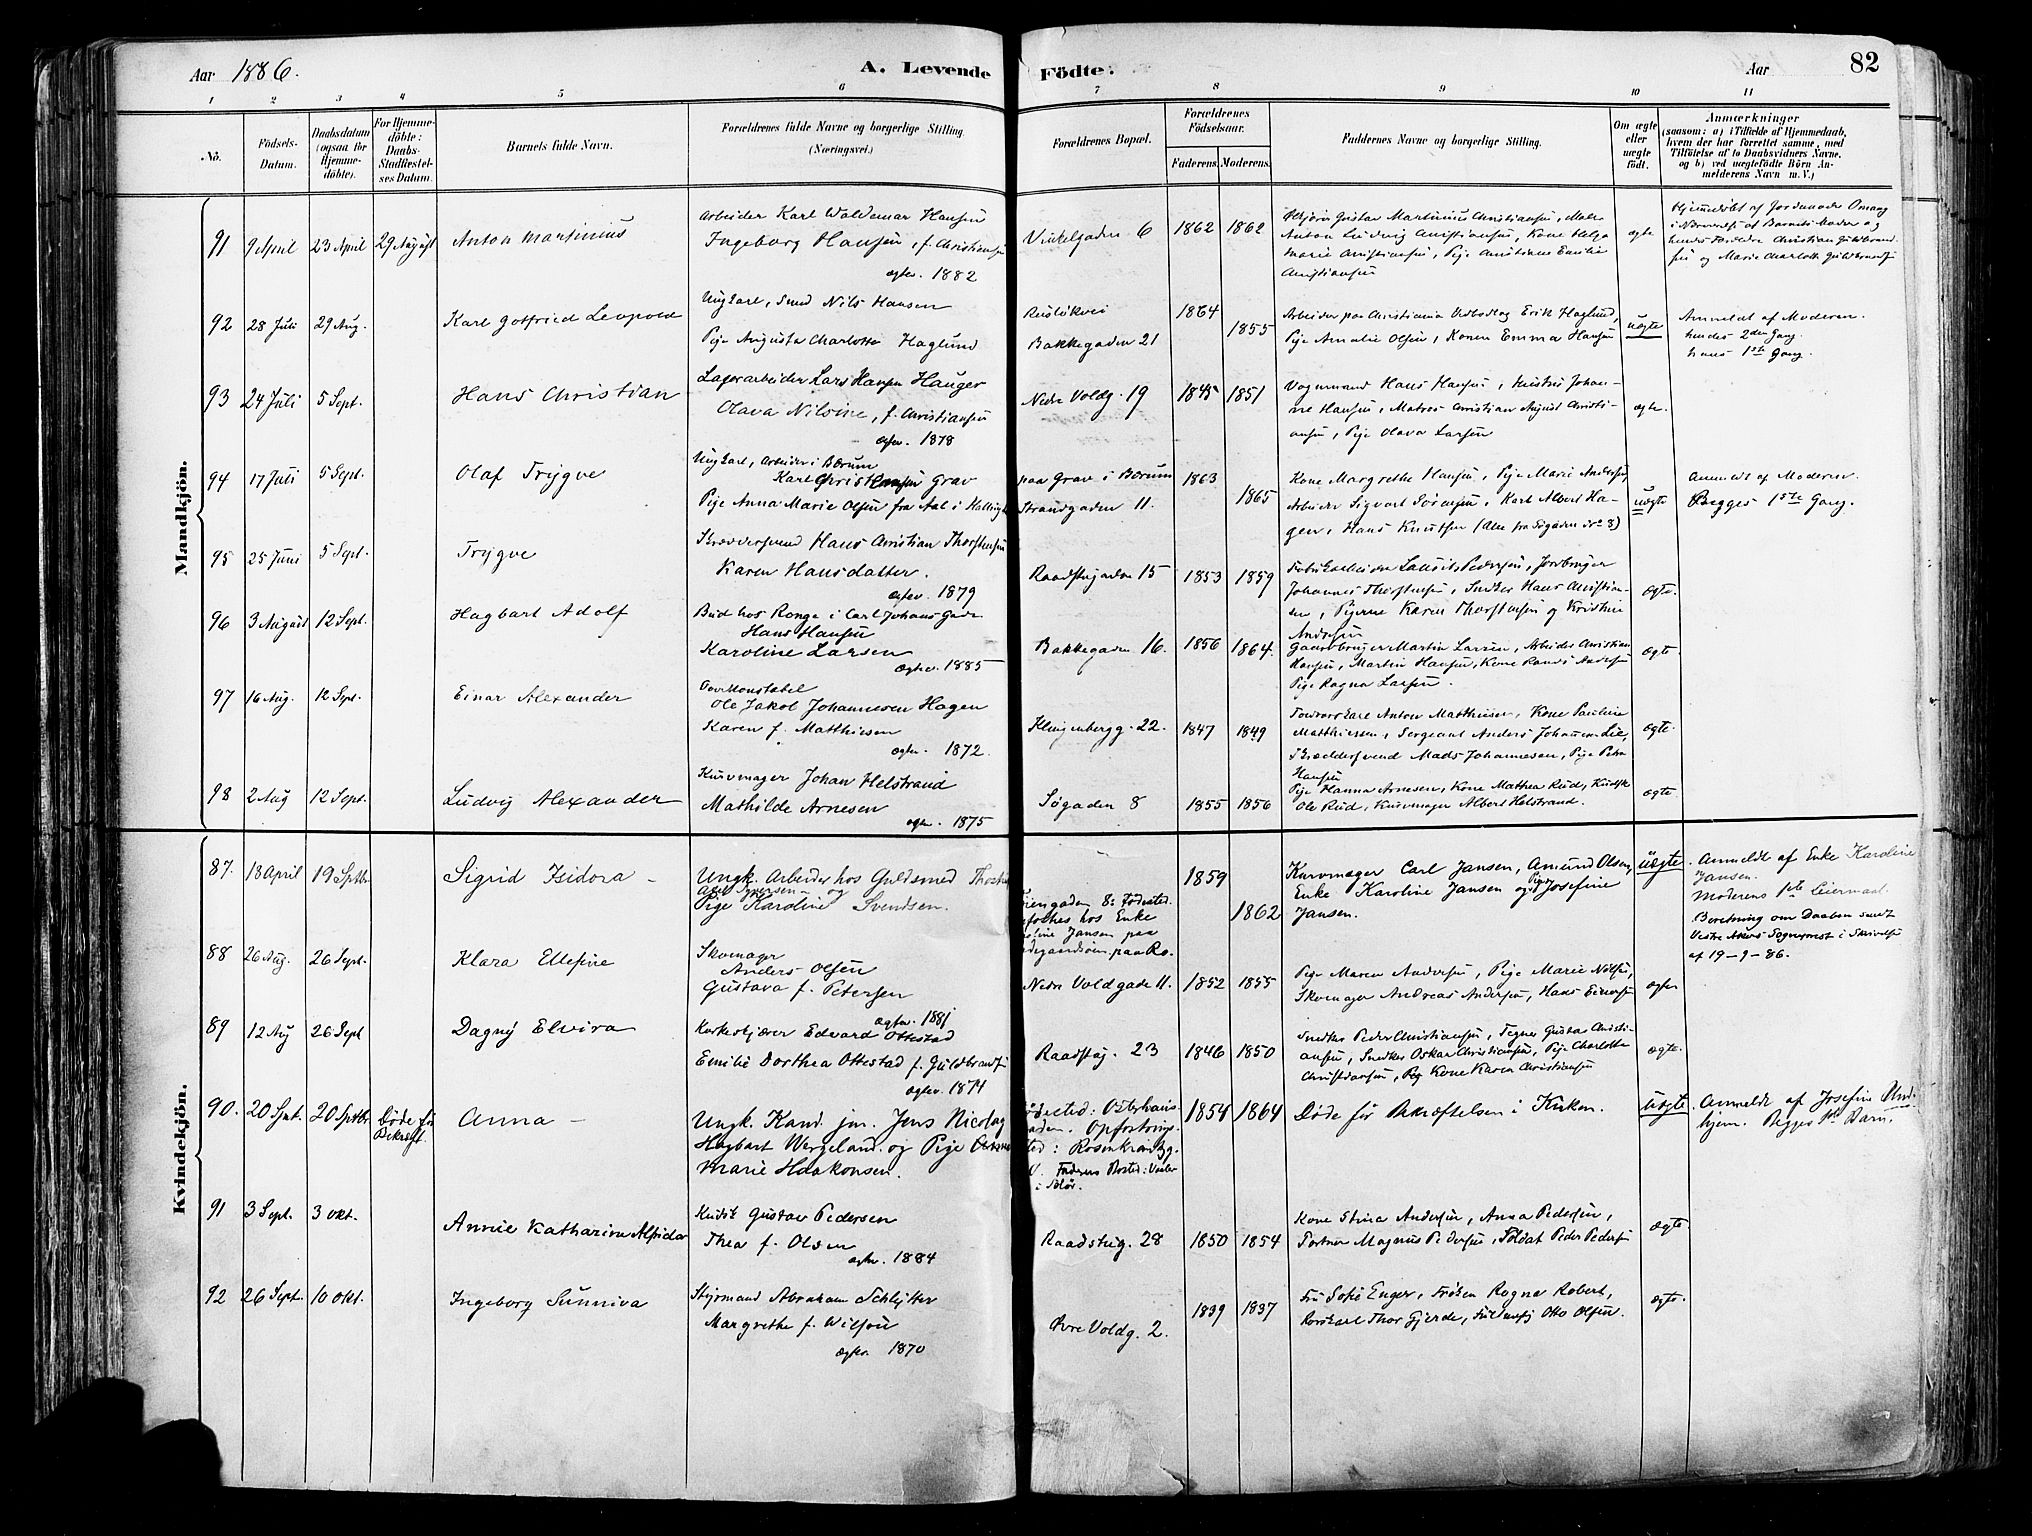 Aar 1886.
A. Levende Födte.
Aar
82
1 2 3 4 5 6 7 8 9 10 11
No.
Födsels-Datum.
Daabsdatum (ogsaa for Hjemmedöbte).
For Hjemmedöbte: Daabs-Stadfæstelses Datum.
Barnets fulde Navn.
Forældrenes fulde Navne og borgerlige Stilling. (Næringsvei.)
Forældrenes Bopæl.
Forældrenes Födselsaar.
Faderens. Moderens.
Faddernes Navne og borgerlige Stilling.
Om ægte eller uægte födt.
Anmærkninger (saasom: a) i Tilfælde af Hjemmedaab, hvem der har forrettet samme, med Tilföielse af to Daabsvidners Navne, og b) ved uægtefödte Börn Anmelderens Navn m. V.)
Mandkjön.
91 9 April 23 April 29 August Anton Martinius
Arbeider Karl Waldemar Hansen
Ingeborg Hansen, f. Christiansen
ægtev. 1882
Vinkelgaden 6 1862 1862
Gustav Martinius Christiansen,
Anton Ludvig Christiansen, Kone Helga
Marie Christiansen, Pige Christiane Emilie
Christiansen
ægte
Hjemmedöbt af Jordmoder Omang
i Nærværelse af Barnets Moder og
hendes Forældre Christian Guldbrand-
sen og Marie Charlotte Guldbrandsen
92 28 Juli 29 Aug. Karl Gotfried Leopold
Ungkarl, Smed Nils Hansen
Pige Augusta Charlotte Haglund
Rusløkvei
Bakkegaden 21
1864 1855
Arbeider paa Christiania Erik Haglund,
Pige Amalie Olsen, Konen Emma Hansen
uægte
Anmeldt af Moderen.
hendes 2den Gang.
hans 1ste Gang.
93 24 Juli 5 Sept. Hans Christian
Lagerarbeider Lars Hansen Hauger
Olava Nilsine, f. Christiansen
ægtev. 1878
Nedre Voldg. 19 1845 1851
Vognmand Hans Hansen, Johan-
ne Hansen, Matros Christian August Christi-
ansen, Pige Olava Larsen
ægte.
94 17 Juli 5 Sept. Olaf Trygve
Ungkarl, Arbeider i Bærum
Karl Christ Hansen Grav
Pige Anna Marie Olsen fra Aal i
paa Grav i Bærum
Strandgaden 11.
1863 1865
Kone Margrethe Hansen, Pige Marie Andersen,
Arbeider Sigvart Sörensen, Karl Albert Ha-
gen, Hans Knutsen (Alle fra Søgaden No 8)
uægte
Anmeldt af Moderen.
Begges 1ste Gang.
95 25 Juni 5 Sept. Trygve
Skræddersvend Hans Christian Thorstensen
Karen Hansdatter.
ægtev. 1879
Raadstugaden 15 1853 1859
Fabrikarbeider Pedersen, Jordbruger
Johannes Thorstensen, Snedker Hans Christian-
sen, Pigerne Karen Thorstensen og Kristine
Andersen
ægte.
96 3 August 12 Sept. Hagbart Adolf
Bud hos Ronge i Carl Johans Gade
Hans Hansen
Karoline Larsen
ægtev. 1885
Bakkegaden 16. 1856 1864.
Gaardbruger Martin Larsen, Arbeider Christian
Hansen, Martin Hansen, Kone Randi Andersen
Pige Ragna Larsen.
ægte
97 16 Aug. 12 Sept. Einar Alexander
Overkonstabel
Ole Jakob Johannesen Hagen
Karen f. Matthiesen
ægtev. 1872.
Klingenbergg. 22. 1847 1849
Anton Matthiesen, Kone Pauline
Matthiesen, Sergeant Anders Johannesen Lie,
Skræddersvend Mads Johannesen, Pige Petra
Hansen
ægte.
98 2 Aug 12 Sept. Ludvig Alexander
Kurvmager Johan Helstrand
Mathilde Arnesen
ægtev. 1875
Søgaden 8 1855 1856
Pige Hanna Arnesen, Kone Mathea Rud, Kudsk
Ole Rud, Kurvmager Albert Helstrand.
ægte.
Kvindekjön.
87. 13 April 19 Septbr. Sigrid Isidora –
Ungk. Arbeider hos Guldsmed
Axel Syversen – og
Pige Karoline Svendsen.
8: Födested.
hos Enke
Jansen paa
1859 1862
Kurvmager Carl Jansen, Amund Olsen,
Enke Karoline Jansen og Pige Josefine
Jansen.
uægte
Anmeldt af Enke Karoline
Jansen.
Moderens 1ste Leiermaal.
Beretning om Daaben sendt
Vestre Akers Sogneprest i Skrivelse
af 19–9–86.
88 26 Aug. 26 Sept. Klara Ellefine
Skomager
Anders Olsen
Gustava f. Petersen
ægtev. 1881
Nedre Voldgade 11. 1852 1855
Pige Maren Andersen, Pige Marie Nilsen,
Skomager Andreas Andersen, Hans Einersen
ægte
89 12 Aug 26 Sept Dagny Elvira
Korkeskjærer Edvard Ottestad
Emilie Dorthea Ottestad f. Guldbrandsen
ægtev. 1874
Raadstug. 23 1846 1850
Snedker Peder Christiansen, Tegner Gustav Christi-
ansen, Snedker Oskar Christiansen, Pige Charlotte
Christiansen, Kone Karen Christiansen
ægte.
90. 20 Sept. 20 Septbr. Döde för Bekræft. Anna –
Ungk. Kand. jur. Jens Nicolay
Hagbart Wergeland og Pige
Marie Haakonsen.
Födested: Osterhaus-
gaden. Opfostrings-
sted: Rosenkrantzg.
Faderens Bosted:
i Solör.
1854 1864
Döde för Bekræftelsen i Kirken.
uægte
Anmeldt af Josefine Und-
hjem. Begges 1ste Barn.
91 3 Sept. 3 Okt. Annie Katharina Alfida
Kudsk Gustav Pedersen
Thea f. Olsen
ægtev. 1884
Raadstug. 28 1850 1854
Kone Stina Andersen, Anna Pedersen,
Portner Magnus Pedersen, Soldat Peder Pedersen
ægte
92 26 Sept. 10 Okt. Ingeborg Sunniva
Styrmand Abraham Schlytter
Margrethe f. Wilson
ægtev. 1870
Øvre Voldg. 2. 1839 1837
Fru Sofie Enger, Frøken Ragna Robert,
Thor Gjerde, Otto Olsen.
ægte.